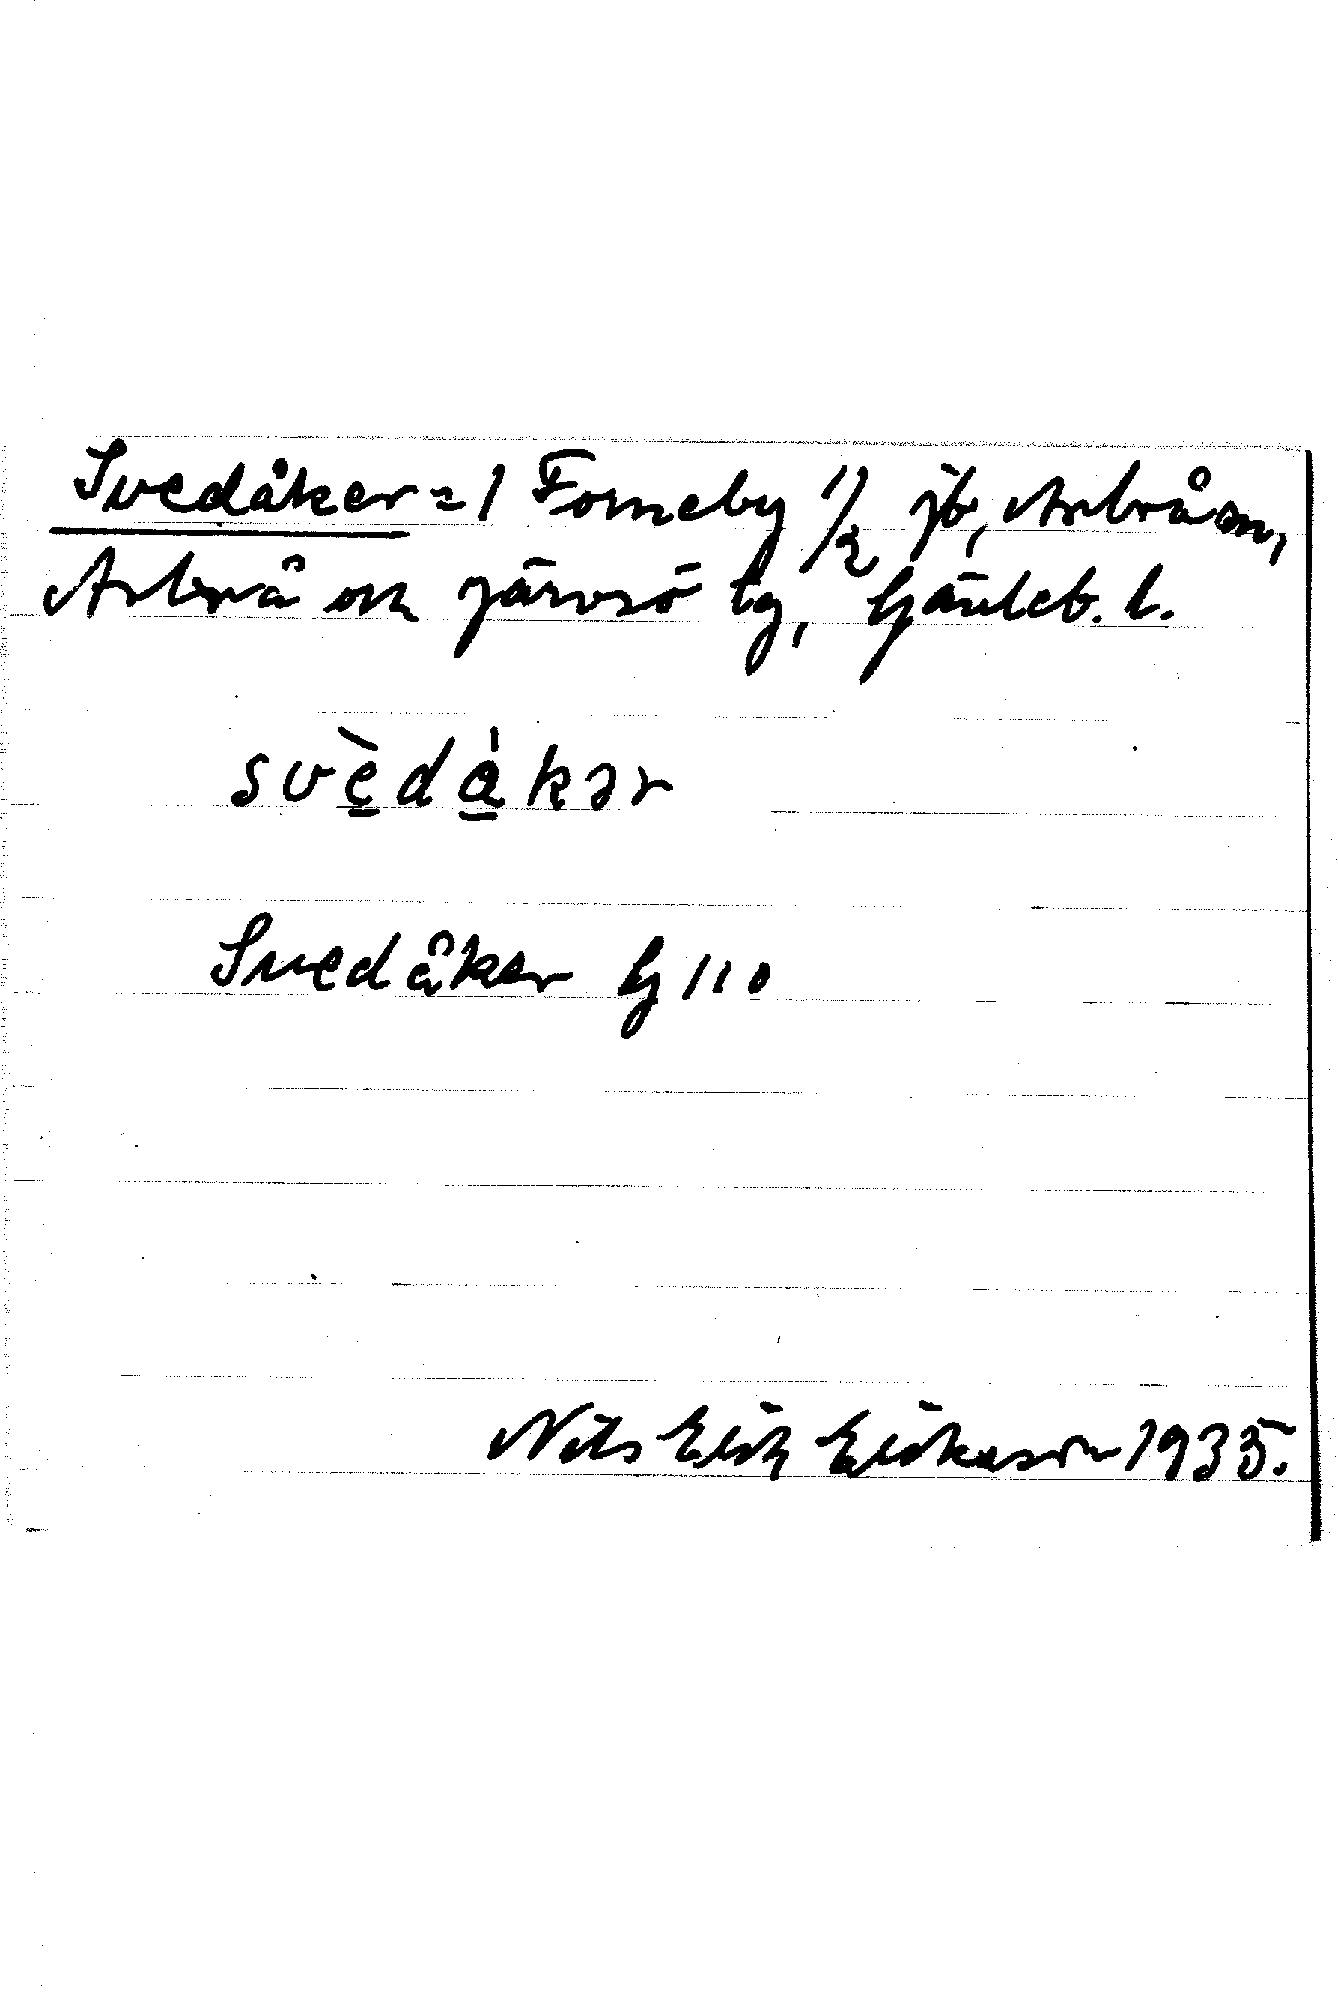 Svedåker = 1 Forneby 1/2 jb, Arbrå sn,
Arbrå och Järvsö tg, Gävleb. l.
svèdåkər
Svedåker G 110
Nils Erik Eriksson 1935.